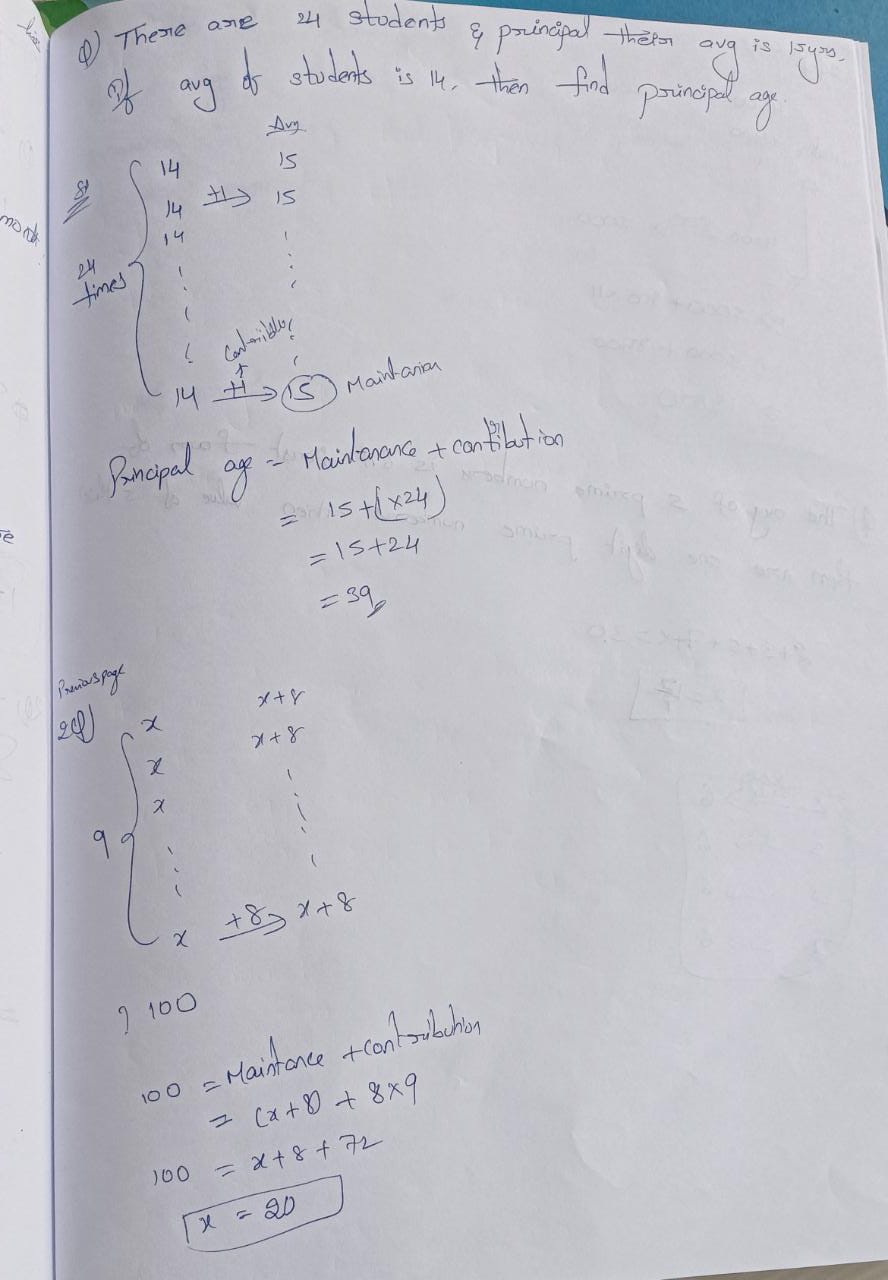 Q) There are 24 students & principal their avg is 15yrs.
If avg of students is 14, then find principal age.
Avg
14 15
14 +1 15
14
24
times
Contribution
14 +1 15 Maintanian
Principal age = Maintanance + contribution
= 15+(1x24)
= 15+24
= 39
Previous page
2Q) x x+8
x x+8
x
9
x +8 x+8
100
100 = Maintance + contribution
= (x+8) + 8x9
100 = x+8+72
x = 20